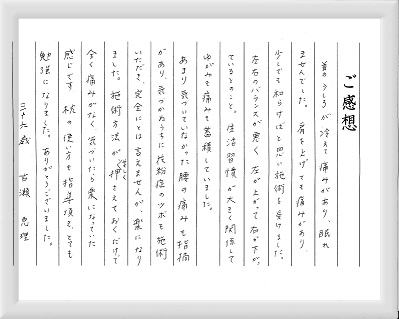 ご感想
首のうしろが冷えて痛みがあり、眠れ
ませんでした。肩を上げても痛みがあり、
少しでも和らげばと思い施術を受けました。
左右のバランスが悪く、左が上がって右が下が
ているとのこと。生活習慣が大きく関係して
ゆがみも痛みも蓄積していました。
あまり気づいていなかった腰の痛みを指摘
があり、気づかぬうちに花粉症のツボも施術
いただき、完全にとは言えませんが、楽になり
ました。施術方法が軽く押さえておくだけで、
全く痛みがなく気づいたら楽になっていた
感じです。枕の使い方も指導頂き、とても
勉強になりました。ありがとうございました。
三十六歳 古瀬 恵理